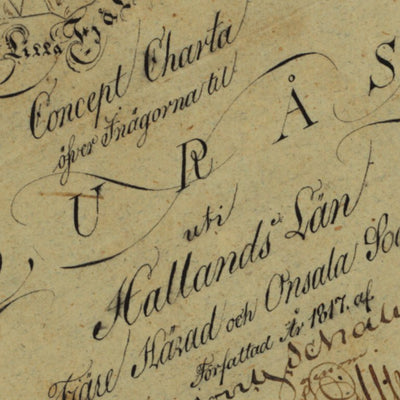 Lilla
Concept Charta
öfver Inägorna til
URÅS
uti
Hallands Län
Fjäre Härad och Onsala
Författad År 1817. af